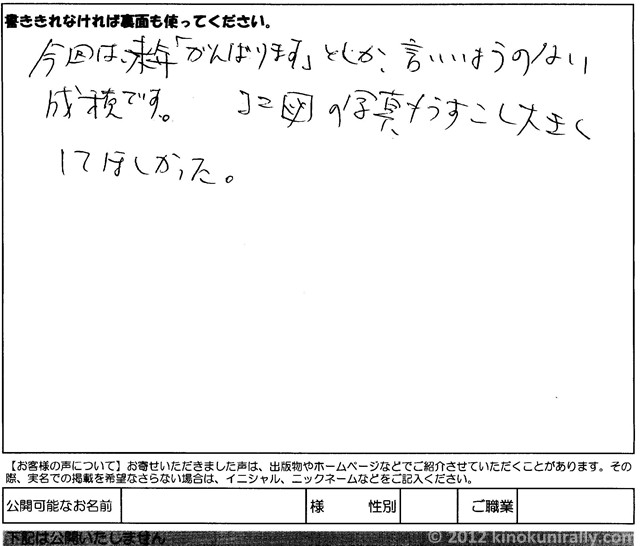 書ききれなければ裏面も使ってください。
今回は、来年「がんばります」としか、言いいようのない
成積です。 コマ図の写真もうすこし大きく
してほしかった。
【お客様の声について】お寄せいただきました声は、出版物やホームページなどでご紹介させていただくことがあります。その
際、実名での掲載を希望なさらない場合は、イニシャル、ニックネームなどをご記入ください。
公開可能なお名前 様 性別 ご職業
下記は公開いたしません
© 2012 kinokunirally.com